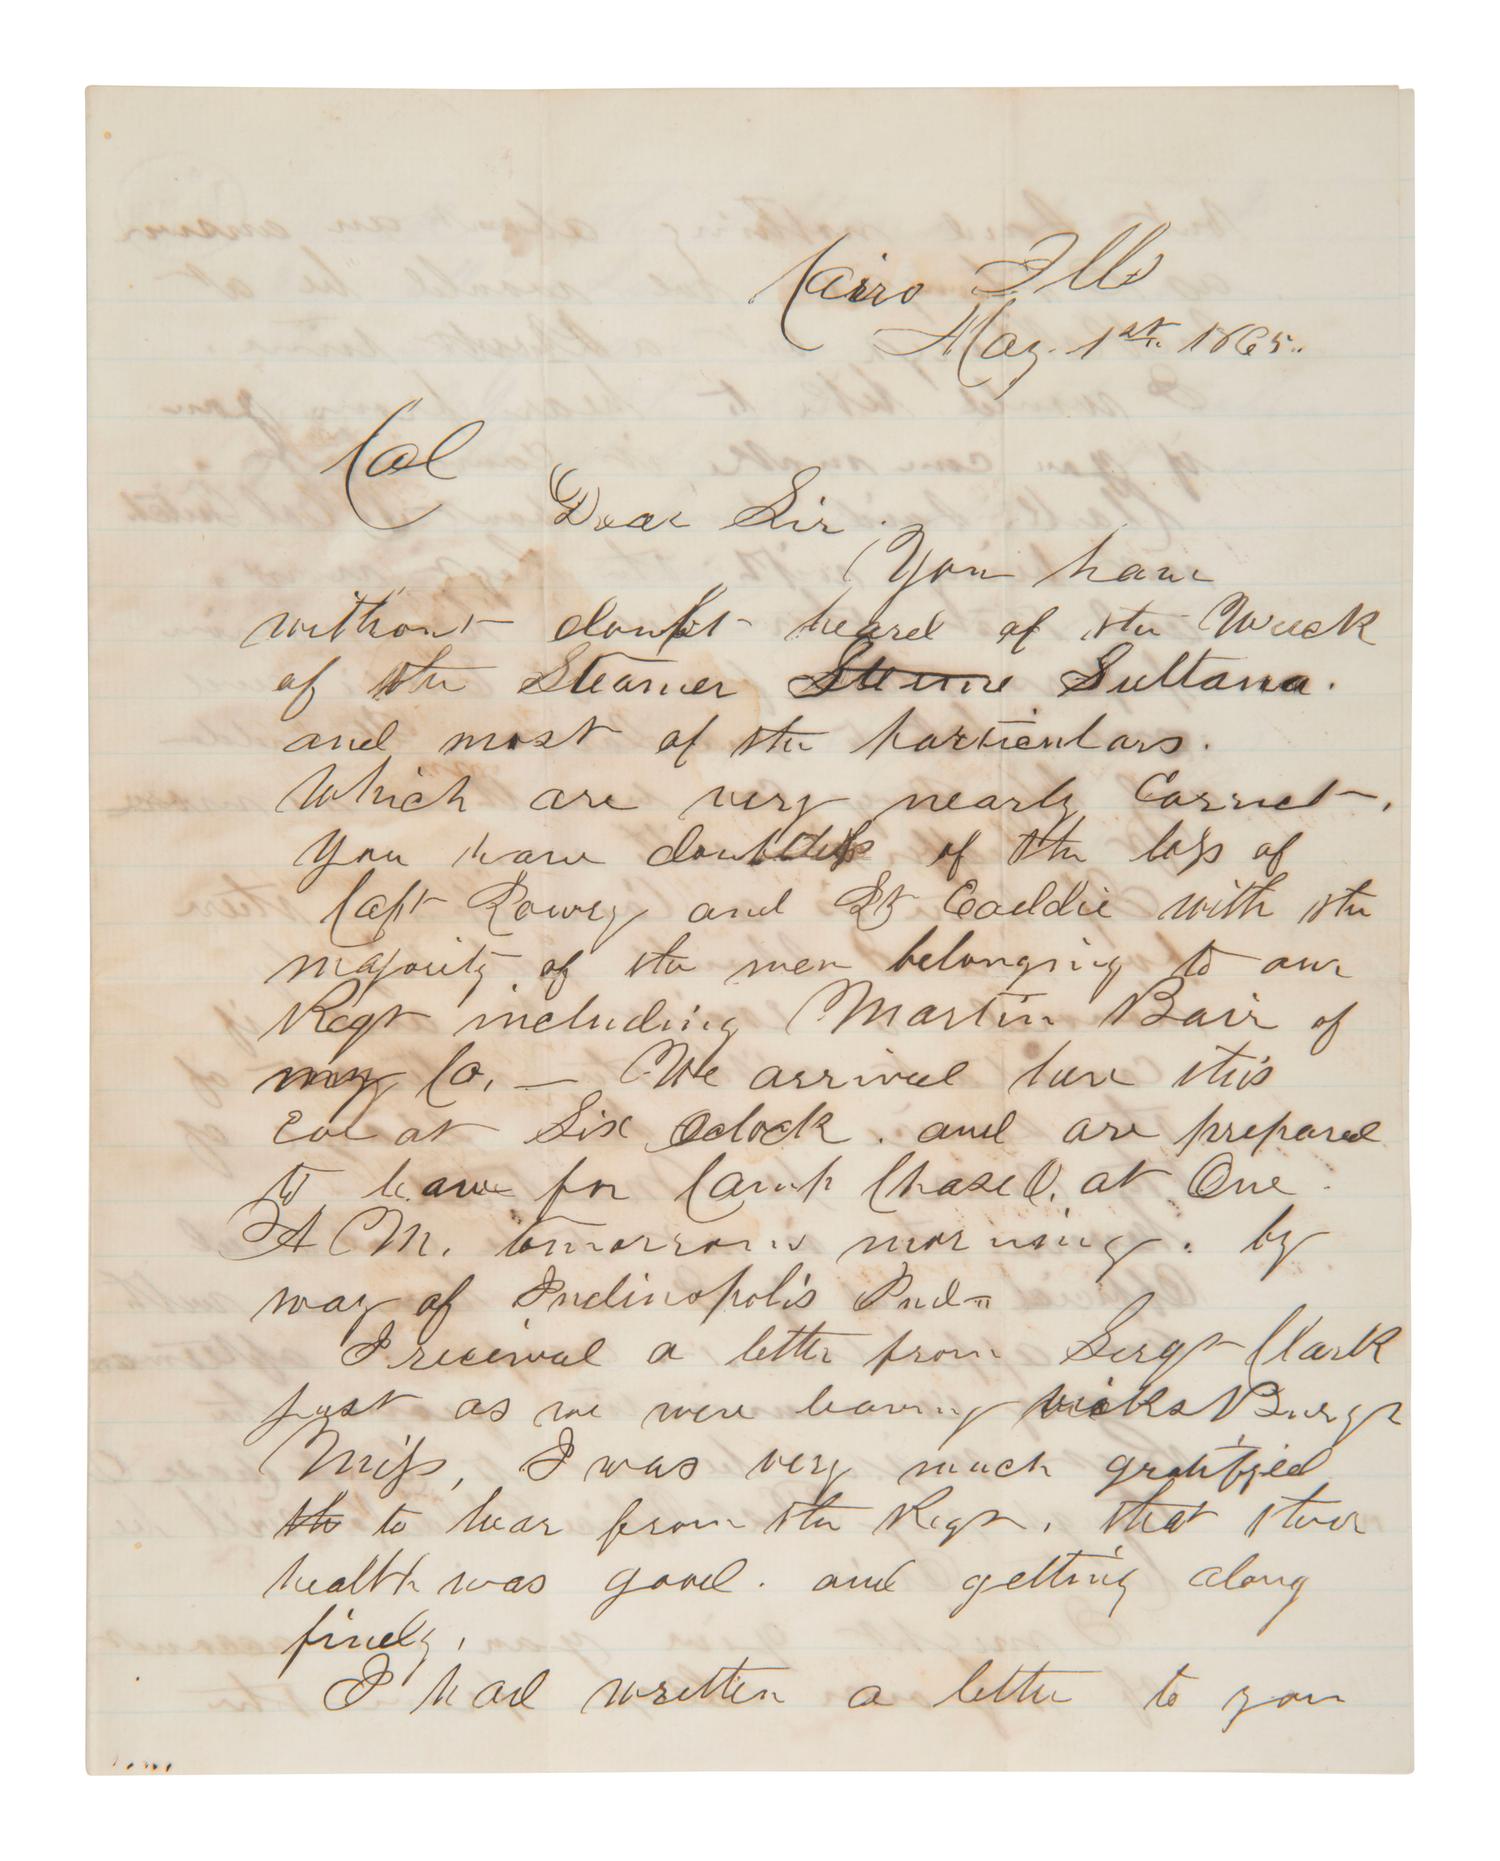 Cairo Ills
May. 1st. 1865.
Col
Dear Sir.
You have
without doubt heard of the Wreck
of the Steamer Sultana.
and most of the particulars.
Which are very nearly Correct.
You have doubtless of the loss of
Capt Lowry and Lt Caddie with the
majority of the men belonging to our
Regt including Martin Bair of
my Co. — We arrived here this
Eve at Six Oclock. and are prepared
to leave for Camp Chase O. at One
A M. tomorrow morning. by
way of Indinopolis Ind=
I received a letter from Sergt Clark
just as we were leaving vicks Burgh
Miss, I was very much gratified
th to hear from the Regt. that their
health was good. and getting along
finely.
I had written a letter to you